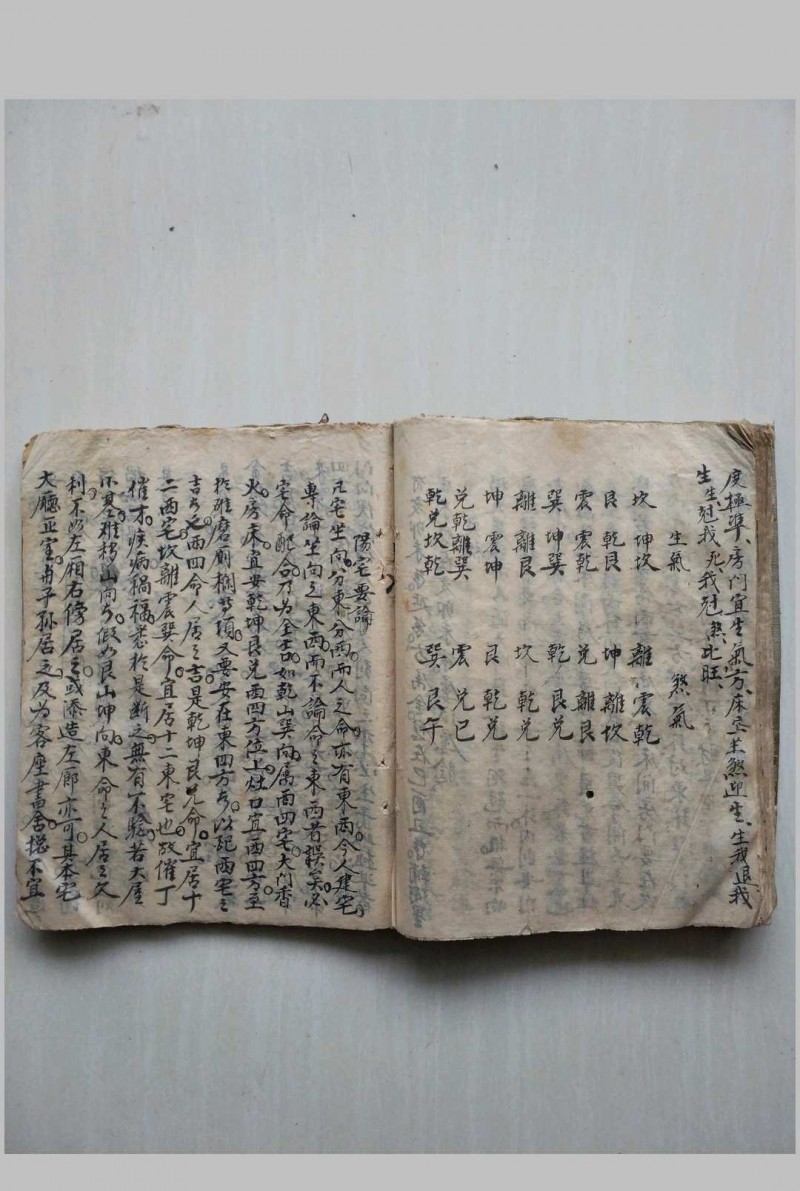 度極準、房门宜生氣方、床宜坐煞迎生、生我退我
生生尅我死、我尅煞、比旺、
生氣 煞氣
坎 坤坎 離 震乾
艮 乾艮 坤 離坎
震 震乾 兑 離艮
巽 坤巽 乾 艮兑
離 離艮 坎 乾兑
坤 震坤 艮 乾兑
兑 乾離巽 震 兑巳
乾 兑坎乾 巽 艮午
陽宅要論
凡宅坐向分東分西而人之命亦有東西今人建宅
專論坐向之東西而不論命之東西者誤矣必
宅命配合乃为全吉如乾山巽向屬西四宅大门香
火房床宜安乾坤艮兑西四方位上灶口宜西四方至
於碓磨廁欄等項又要安在東四方方以記西宅之
吉方也西四命人居之吉是乾坤艮兑命宜居十
二西宅坎離震巽命宜居十二東宅也故催丁
催才疾病禍福悉於是断之無有不驗若大屋
不基难移山向方假如艮山坤向東命之人居之欠
利不如左厢右傍居之或添造左廊亦可其本宅
大廳正室弁子孫居之及为客座書舍摠不宜